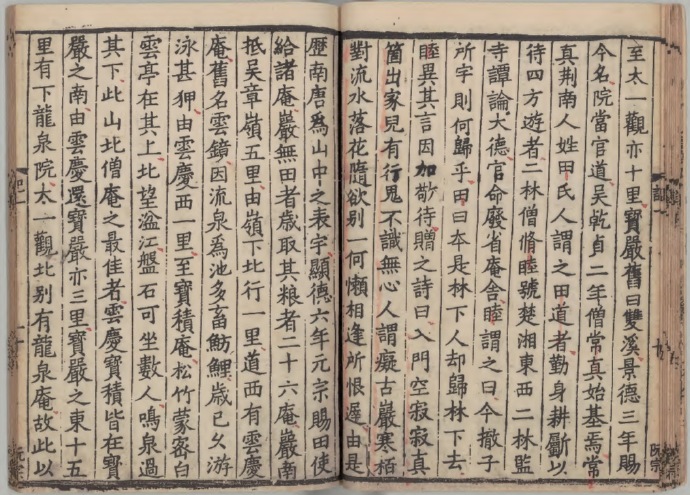 至太一觀亦十里寶嚴舊曰雙溪景德三年賜
今名院當官道吳乾貞二年僧常真始基焉常
真荆南人姓田氏人謂之田道者勤身耕斸以
待四方遊者二林僧脩睦號楚湘東西二林監
寺譚論大德官命廢省庵舍睦謂之曰今撤子
所字則何歸乎田曰夲是林下人却歸林下去
睦異其言因加敬待贈之詩曰入門空寂寂真
箇出家兒有行鬼不識無心人謂癡古巖寒栢
對流水落花隨欲别一何懶相逢所恨遲由是
歷南唐爲山中之表字顯德六年元宗賜田使
給諸庵巖無田者歲取其粮者二十六庵巖南
抵吴章嶺五里由嶺下北行一里道西有雲慶
庵舊名雲鏡因流泉爲池多畜魴鯉歲已久游
泳甚狎由雲慶西一里至寶積庵松竹蒙密白
雲亭在其上北望湓江盤石可坐數人鳴泉過
其下此山北僧庵之最佳者雲慶寶積皆在寶
嚴之南由雲慶還寶嚴亦三里寶嚴之東十五
里有下龍泉院太一觀北别有龍泉庵故此以
阮宗